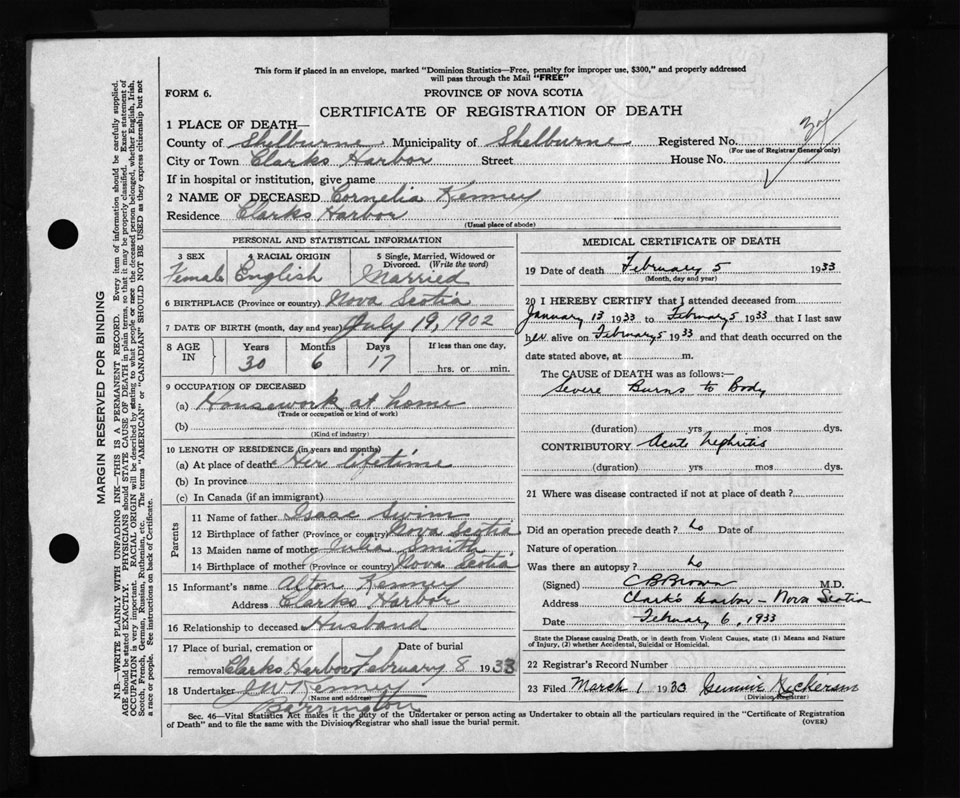 This form if placed in an envelope, marked "Dominion Statistics—Free, penalty for improper use, $300," and properly addressed
will pass through the Mail "FREE"
FORM 6.
PROVINCE OF NOVA SCOTIA
CERTIFICATE OF REGISTRATION OF DEATH
1 PLACE OF DEATH—
County of Shelburne Municipality of Shelburne Registered No.
(For use of Registrar General only)
City or Town Clarks Harbor Street House No.
If in hospital or institution, give name
2 NAME OF DECEASED Cornelia Kenney
Residence Clarks Harbor
(Usual place of abode)
PERSONAL AND STATISTICAL INFORMATION
3 SEX 4 RACIAL ORIGIN 5 Single, Married, Widowed or Divorced. (Write the word)
Female English Married
6 BIRTHPLACE (Province or country) Nova Scotia
7 DATE OF BIRTH (month, day and year) July 19, 1902
8 AGE IN Years Months Days If less than one day,
30 6 17 hrs. or min.
9 OCCUPATION OF DECEASED
(a) Housework at home
(Trade or occupation or kind of work)
(b)
(Kind of industry)
10 LENGTH OF RESIDENCE (in years and months)
(a) At place of death Her lifetime
(b) In province
(c) In Canada (if an immigrant)
Parents
11 Name of father Isaac Swim
12 Birthplace of father (Province or country) Nova Scotia
13 Maiden name of mother Julia Smith
14 Birthplace of mother (Province or country) Nova Scotia
15 Informant's name Alton Kenney
Address Clarks Harbor
16 Relationship to deceased Husband
17 Place of burial, cremation or Date of burial
removal Clarks Harbor February 8 1933
18 Undertaker J W Kenney
(Name and address)
Barrington
MEDICAL CERTIFICATE OF DEATH
19 Date of death February 5 1933
(Month, day and year)
20 I HEREBY CERTIFY that I attended deceased from
January 13 1933 to February 5 1933 that I last saw
her alive on February 5 1933 and that death occurred on the
date stated above, at m.
The CAUSE OF DEATH was as follows:—
Severe Burns to Body
(duration) yrs mos dys.
CONTRIBUTORY Acute Nephritis
(duration) yrs mos dys.
21 Where was disease contracted if not at place of death?
Did an operation precede death? No Date of
Nature of operation
Was there an autopsy? No
(Signed) C B Brown M.D.
Address Clark's Harbor - Nova Scotia
Date February 6, 1933
State the Disease causing Death, or in death from Violent Causes, state (1) Means and Nature
of Injury, (2) whether Accidental, Suicidal or Homicidal.
22 Registrar's Record Number
23 Filed March 1 1933
(Division Registrar)
Sec. 46—Vital Statistics Act makes it the duty of the Undertaker or person acting as Undertaker to obtain all the particulars required in the "Certificate of Registration
of Death" and to file the same with the Division Registrar who shall issue the burial permit.
(OVER)
MARGIN RESERVED FOR BINDING
N.B.—WRITE PLAINLY WITH UNFADING INK—THIS IS A PERMANENT RECORD. Every item of information should be carefully supplied.
AGE should be stated EXACTLY. PHYSICIANS should STATE CAUSE OF DEATH in plain terms, so that it may be properly classified. Exact statement of
OCCUPATION is very important. RACIAL ORIGIN will be described by stating to what people or race the deceased person belonged, whether English, Irish,
Scotch, French, German, Russian, Ruthenian, etc. The terms "AMERICAN" or "CANADIAN" SHOULD NOT BE USED as they express citizenship but not
a race or people. See instructions on back of Certificate.